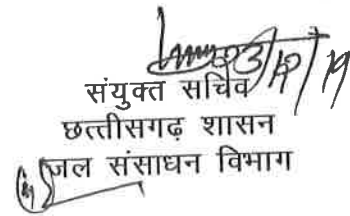 23/12/19
संयुक्त सचिव
छत्तीसगढ़ शासन
जल संसाधन विभाग